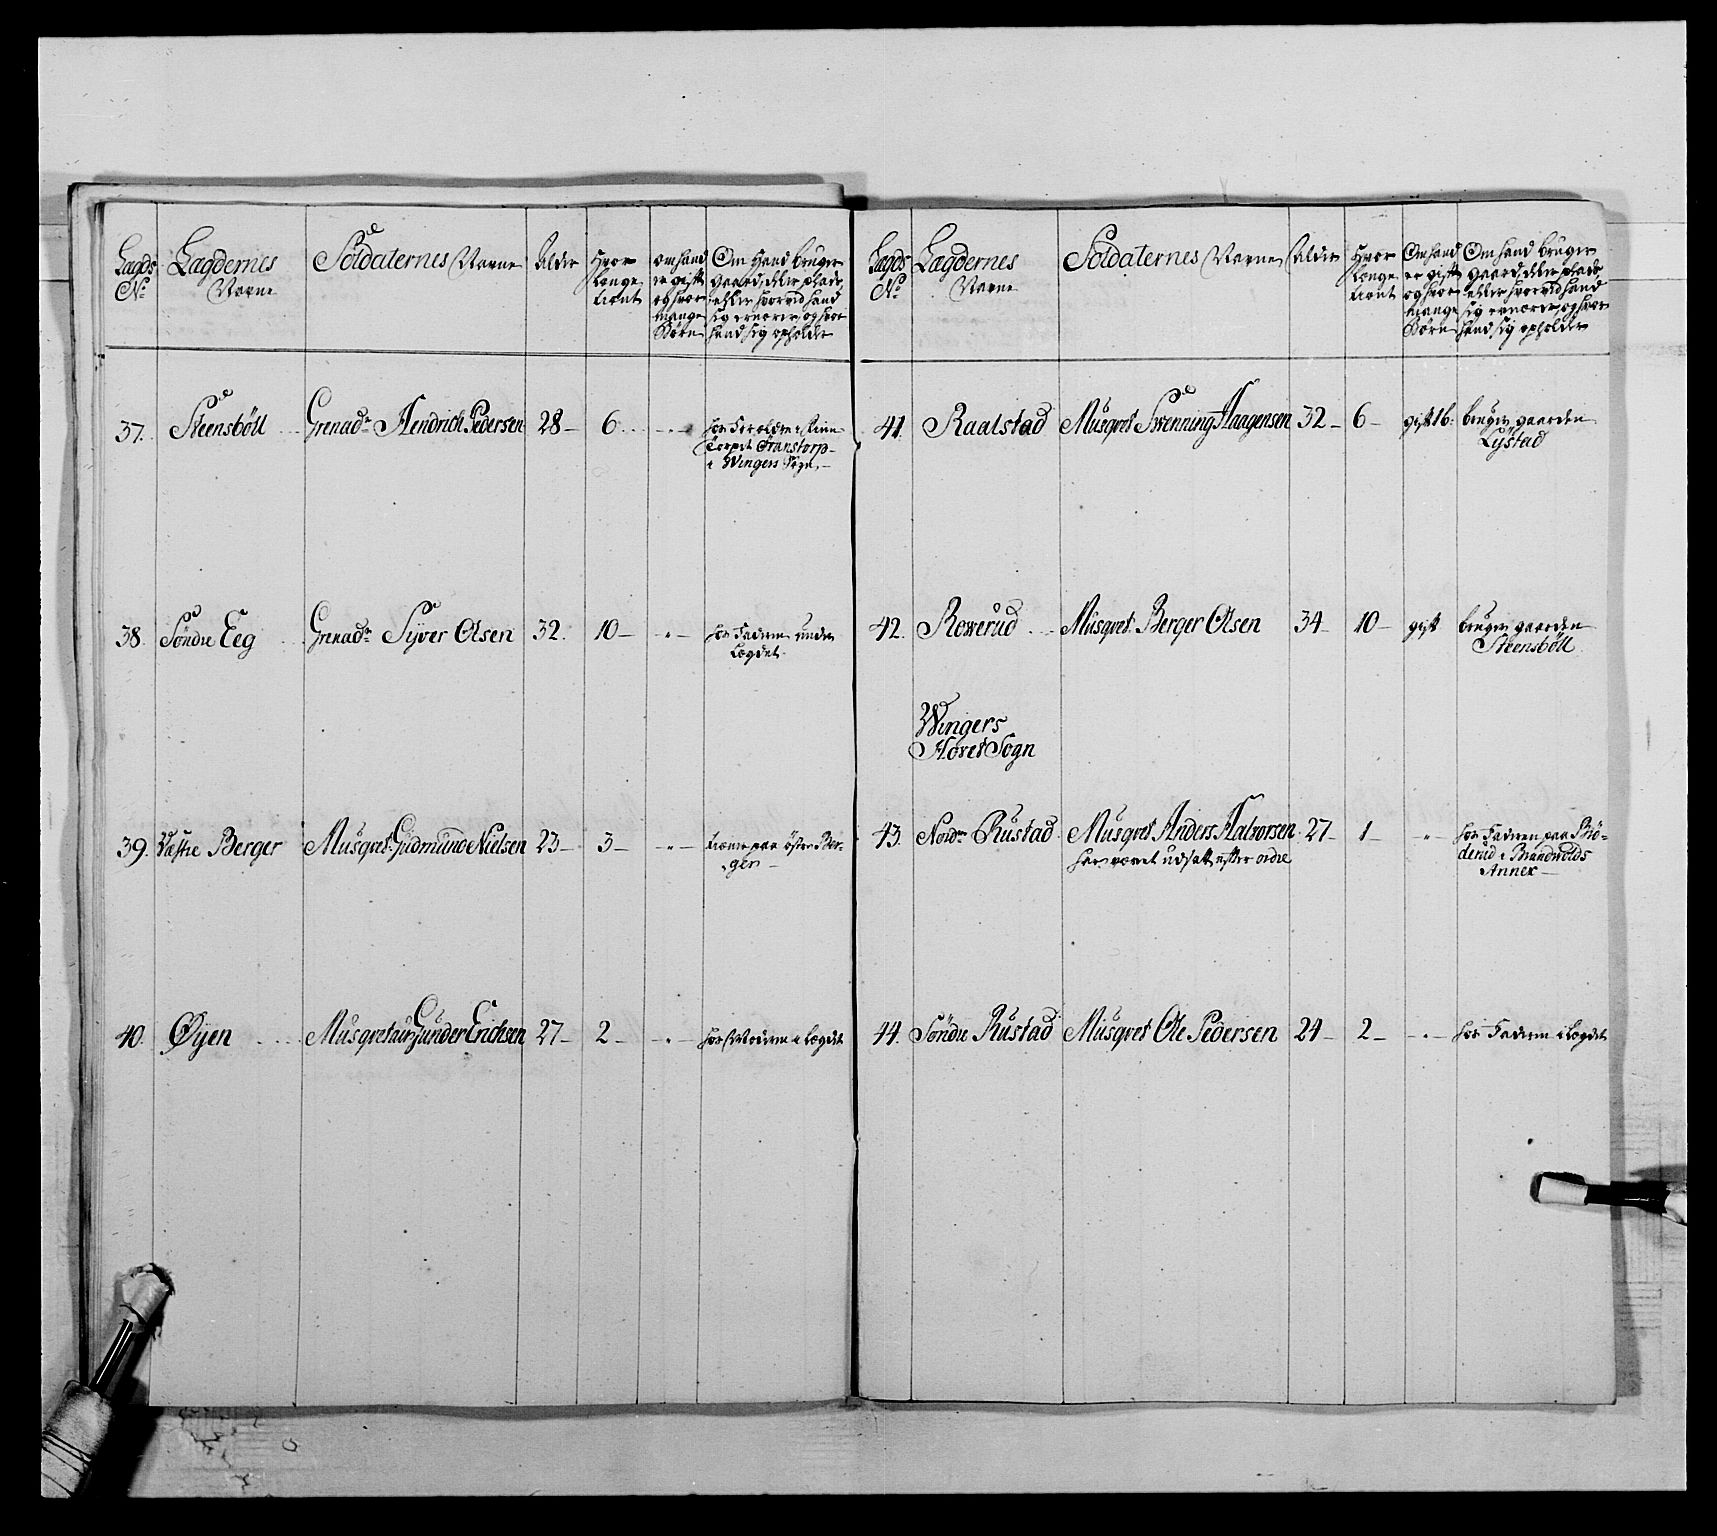 Lægds No
Lægdernes Navne
Soldaternes Navne
Alder
Hvor længe tient
om hand er gift og hvor mange Børn
Om Hand bruger gaard, eller plads, eller hvorved hand sig ernærer, og hvor hand sig opholder
37. Steensböll Grenadr Hendrich Pedersen 28 6
hos Forældrene
Torpet Transtorp
i Wingers Sogn
38. Söndre Eeg Grenadr Syver Olsen 32. 10
hos Faderen under
Lægdet
39. Væstre Berger Musqret Gudmund Nielsen 23 3
tiener paa östre Ber-
gen
40. Øyen Musqretair Gunder Erichsen 27 2 hos Moderen i Lægdet
Lægds No
Lægdernes Navne
Soldaternes Navne
Alder
Hvor længe tient
Om hand er gift og hvor mange Børn
Om hand bruger gaard, eller plads, eller hvorved hand sig ernærer, og hvor hand sig opholder
41. Raatstad Musqret Swenning Haagensen 32 6 gift 1 b. bruger gaarden
Lystad
42. Rowerud Musqret Berger Olsen 34 10 gift bruger gaarden
Steensböll
Wingers
Hovet Sogn
43. Nordre Rustad Musqret Anders Halvorsen 27 1 hos Faderen paa Brö-
har været udsatt efter ordre
derud i Brandwolds
Annex
44. Söndre Rustad Musqret Ole Pedersen 24 2 hos Faderen i Lægdet